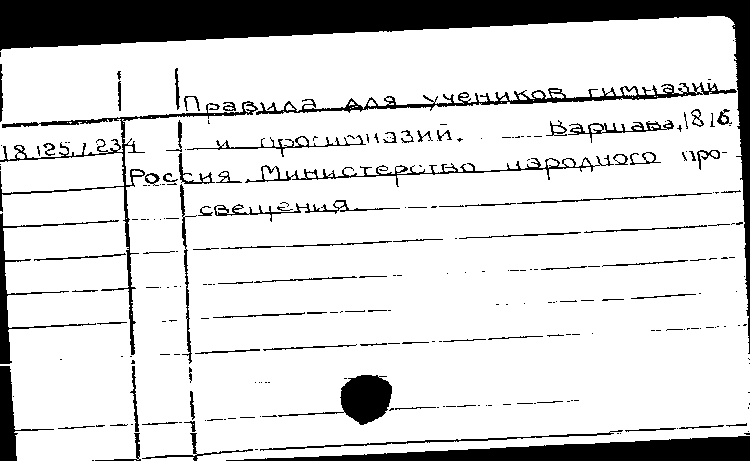 Правила для учеников гимназий
18.125.7.234 и прогимназий. Варшава, 1876
Россия. Министерство народного про-
свещения.